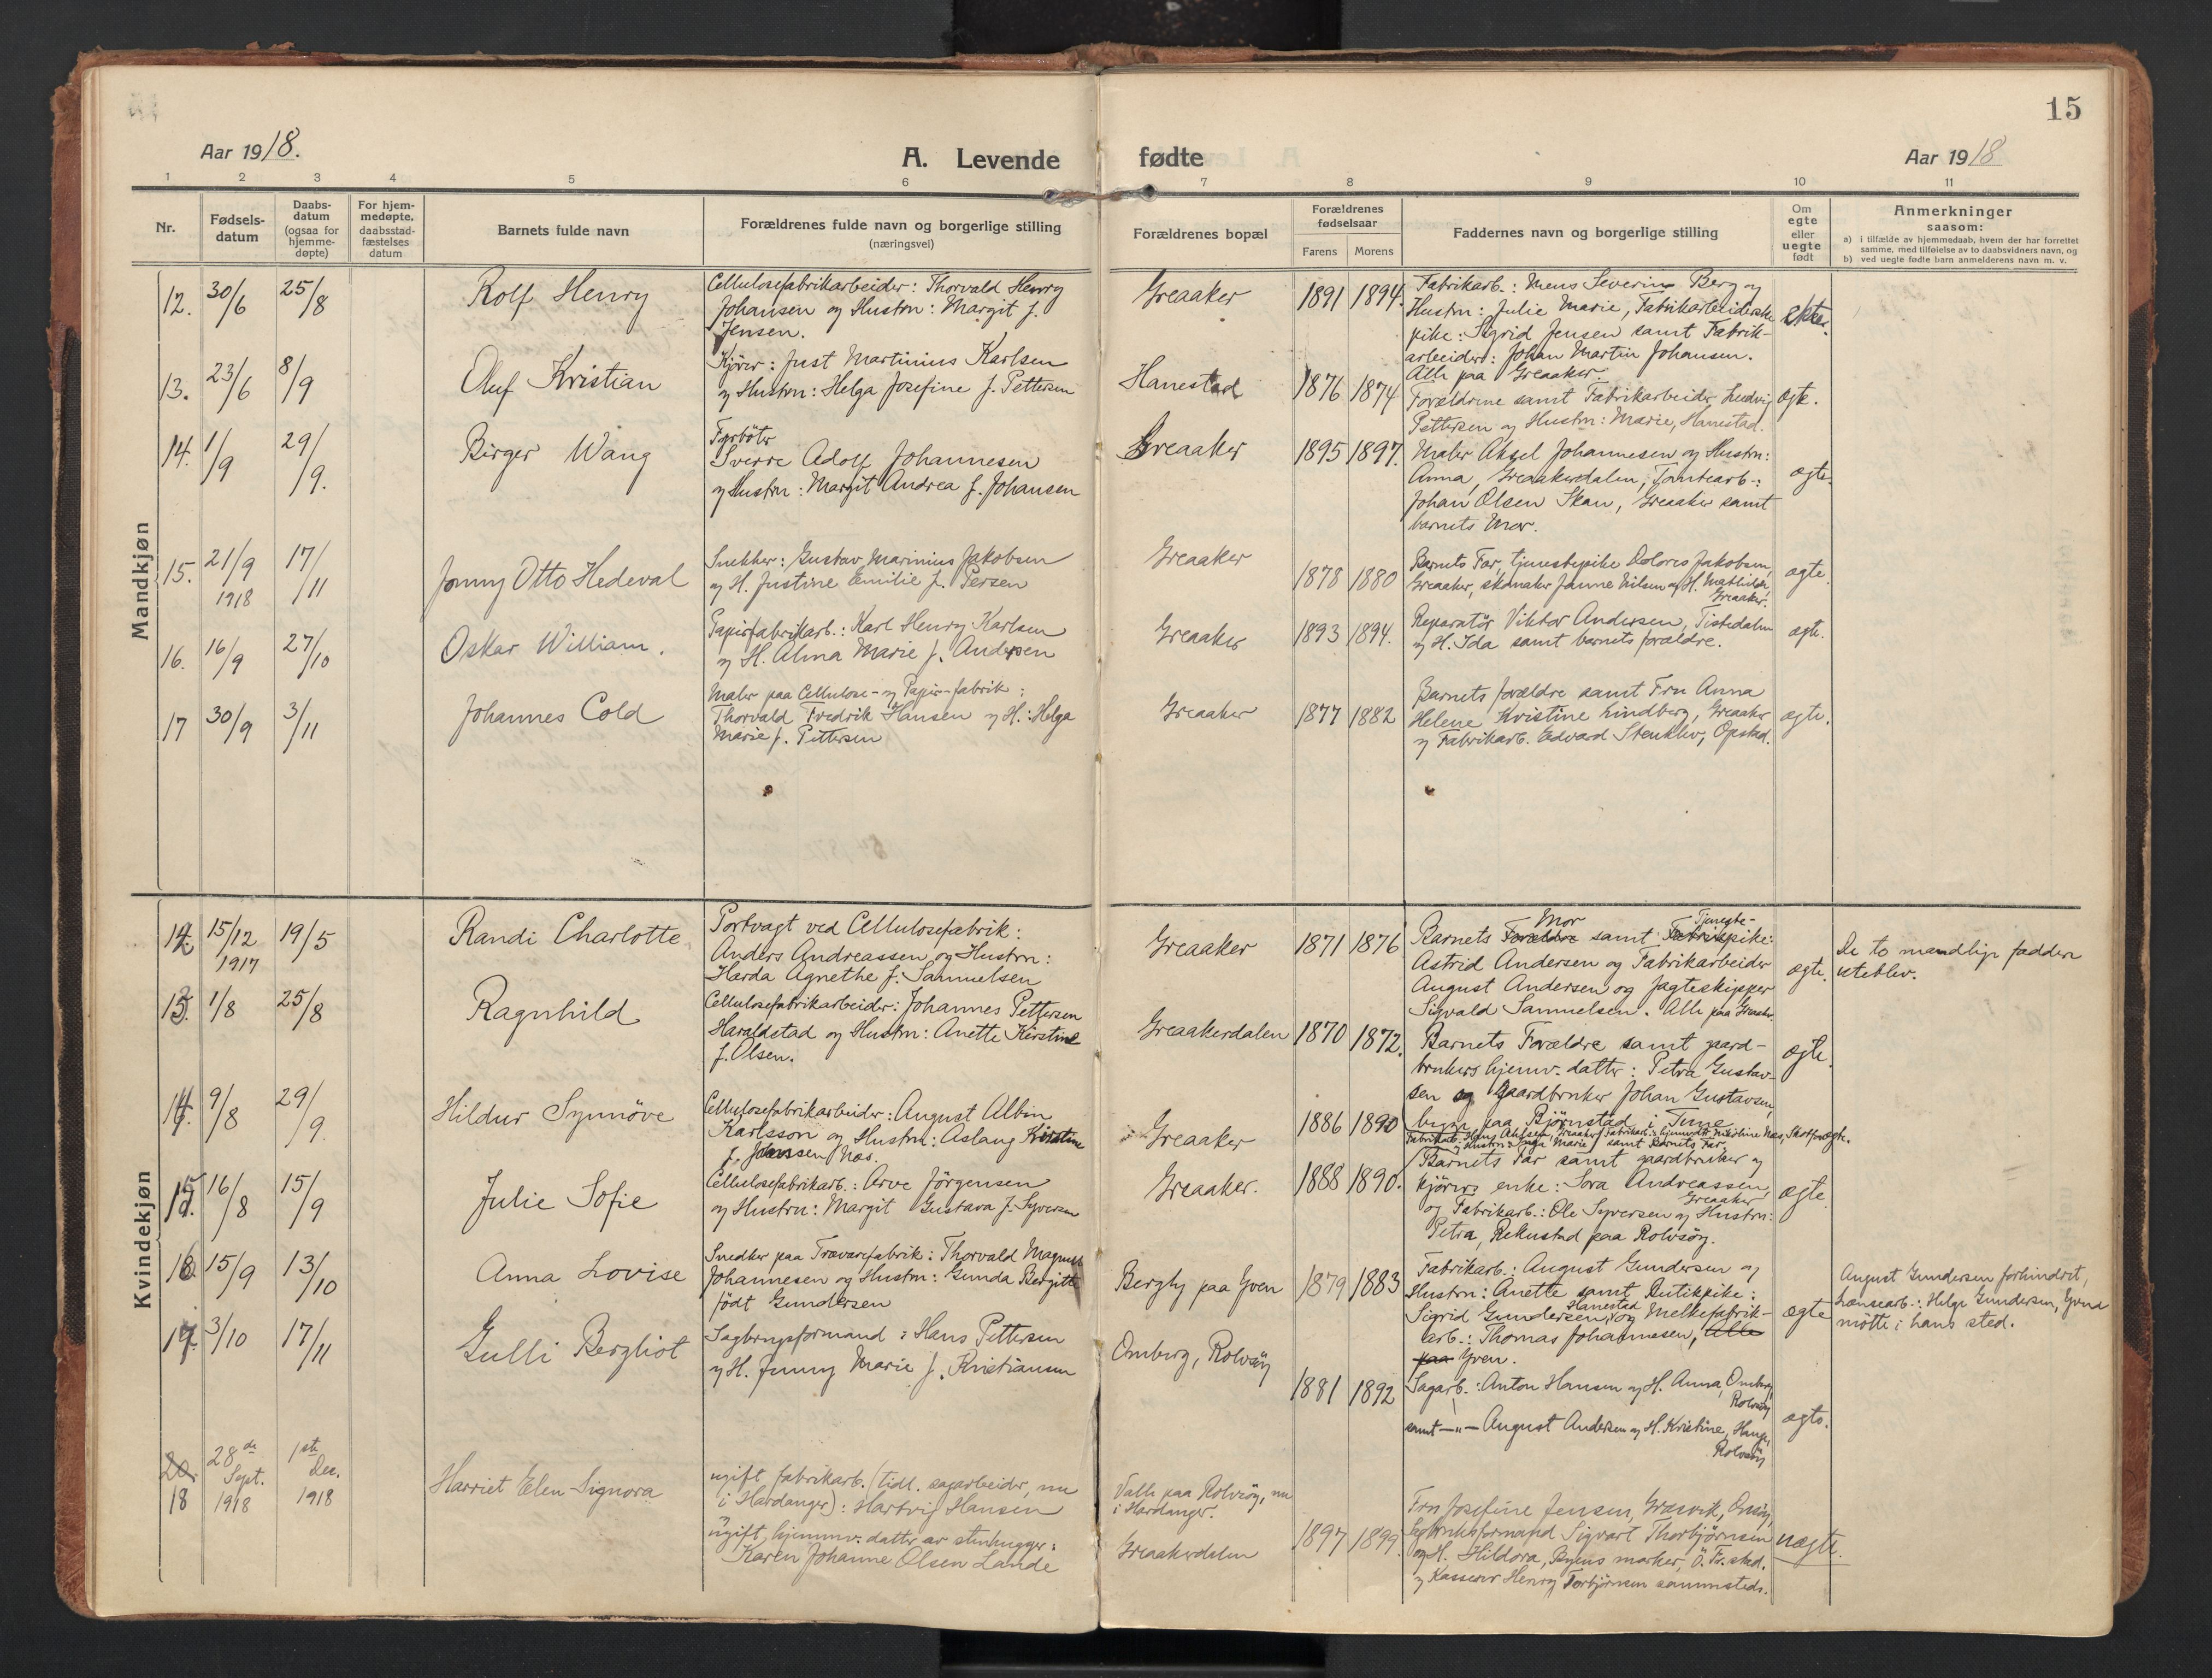 15
Aar 1918.
A. Levende
fødte
Aar 1918
1 2 3 4 5 6 7 8 9 10 11
Nr.
Fødsels-
datum
Daabs-
datum
(ogsaa for
hjemme-
døpte)
For hjem-
medøpte,
daabsstad-
fæstelses
datum
Barnets fulde navn
Forældrenes fulde navn og borgerlige stilling
(næringsvei)
Forældrenes bopæl
Forældrenes
fødselsaar
Farens Morens
Faddernes navn og borgerlige stilling
Om
egte
eller
uegte
født
Anmerkninger
saasom:
a) i tilfælde av hjemmedaab, hvem der har forrettet
samme, med tilføielse av to daabsvidners navn, og
b) ved uegte fødte barn anmelderens navn m. v.
Mandkjøn
12. 30/6 25/8
Rolf Henry
Cellulosefabrikarbeider: Thorvald Henry
Johansen og Hustru: Margit f.
Jensen.
Greaaker
1891 1894.
Fabrikarb.: Mens Severin Berg og
Hustru: Julie Marie, Fabrikarbeiderske
pike: Sigrid Jensen samt Fabrik-
arbeider: Johan Martin Johansen.
Alle paa Greaaker.
ekte.
13. 23/6 8/9
Oluf Kristian
Kjører: Just Martinius Karlsen
og Hustru: Helga Josefine f. Pettersen
Hanestad
1876 1874
Forældrene samt Fabrikarbeider Ludvig
Pettersen og Hustru: Marie, Hanestad.
egte.
14. 1/9 29/9.
Birger Wang
Fyrbøter
Sverre Adolf Johannesen
og Hustru: Margit Andrea f. Johansen
Greaaker
1895 1897.
Maler Aksel Johannesen og Hustru:
Anna, Greaakerdalen, Tomtearb.:
Johan Olsen Skau, Greaaker samt
barnets Mor.
egte.
15. 21/9 1918 17/11
Jonny Otto Hedeval
Snekker: Gustav Marinius Jakobsen
og H. Justine Emilie f. Persen
Greaaker
1878 1880
Barnets Far, tjenestepike Dolores Jakobsen,
Greaaker, skomaker Janne Nilsen og H. Mathilde,
Greaaker.
egte.
16. 16/9 27/10
Oskar William.
Papirfabrikarb.: Karl Henry Karlsen
og H. Alma Marie f. Andersen
Greaaker
1893 1894.
Reparatør Viktor Andersen, Tistedalen
og H. Ida samt barnets forældre.
egte.
17 30/9 3/11
Johannes Cold
Maler paa Cellulose- og Papir-fabrik:
Thorvald Fredrik Hansen og H.: Helga
Marie f. Pettersen
Greaaker
1877 1882
Barnets forældre samt Fru Anna
Helene Kristine Lindberg, Greaaker
og Fabrikarb. Edvard Stenklev, Opstad.
egte.
Kvindekjøn
12 15/12 1917 19/5
Randi Charlotte
Portvagt ved Cellulosefabrik:
Anders Andreassen og Hustru:
Harda Agnethe f. Samuelsen
Greaaker
1871 1876
Barnets Forældre Mor samt Fabrik Tjeneste-pike:
Astrid Andersen og Fabrikarbeider
August Andersen og Jagteskipper
Sigvald Samuelsen. Alle paa Greaaker.
egte.
De to mandlige faddere
uteblev.
13. 1/8 25/8
Ragnhild
Cellulosefabrikarbeider: Johannes Pettersen
Haraldstad og Hustru: Anette Kirstine
f. Olsen.
Greaakerdalen
1870 1872.
Barnets Forældre samt gaard-
brukers hjemv. datter: Petra Gustav-
sen og Gaardbruker Johan Gustavsen,
begge paa Bjørnstad i Tune.
egte.
14. 9/8 29/9.
Hildur Synnöve
Cellulosefabrikarbeider: August Albin
Karlsson og Hustru: Aslaug Kirstine
f. Jensen Næs.
Greaaker
1886 1890
samt Barnets Far.
15. 16/8 15/9
Julie Sofie
Cellulosefabrikarb.: Arve Jörgensen
og Hustru: Margit Gustava f. Syversen
Greaaker.
1888 1890.
Barnets Far samt gaardbruker og
kjørers enke: Lora Andreassen,
Greaaker
og Fabrikarb.: Ole Syversen og Hustru:
Petra, Rekustad paa Rolvsøy.
egte
16. 15/9 13/10
Anna Lovise
Snedker paa Trævarefabrik: Thorvald Magnus
Johannesen og Hustru: Gunda Bergitte
født Gundersen
Bergby paa Yven
1879 1883
Fabrikarb.: August Gundersen og
Hustru: Anette samt Butikpike:
Sigrid Gundersen, Hanestad og Melkefabrik-
arb.: Thomas Johannesen, Alle
paa Yven.
egte
August Gundersen forhindret,
Lænsearb.: Helge Gundersen, Yven
møtte i hans sted.
17. 3/10 17/11
Gulli Bergliot
Sagbrugsformand: Hans Pettersen
og H. Jenny Marie f. Kristiansen
Omberg, Rolvsøy
1881 1892
Sagarb.: Anton Hansen og H. Anna, Omberg,
Rolvsøy
samt —„— August Andersen og H. Kristine, Hauge,
Rolvsøy
egte.
20. 18 28de Sept. 1918 1ste Dec. 1918
Harriet Elen Signora
ugift fabrikarb. (tidl. sagarbeider, nu
i Hardanger): Hartvig Hansen
ugift, hjemmv. datter av stenhugger:
Karen Johanne Olsen Lande
Valle paa Rolvsøy, nu
i Hardanger.
Greaakerdalen
1897 1899.
Fru Josefine Jensen, Græsvik, Onsøy,
Sagbruksformand Sigvart Thorbjørnsen
og H. Hildora, Byens marker, Ö. Fr.stad.
og Kasserer Henry Torbjørnsen sammesteds.
uegte.